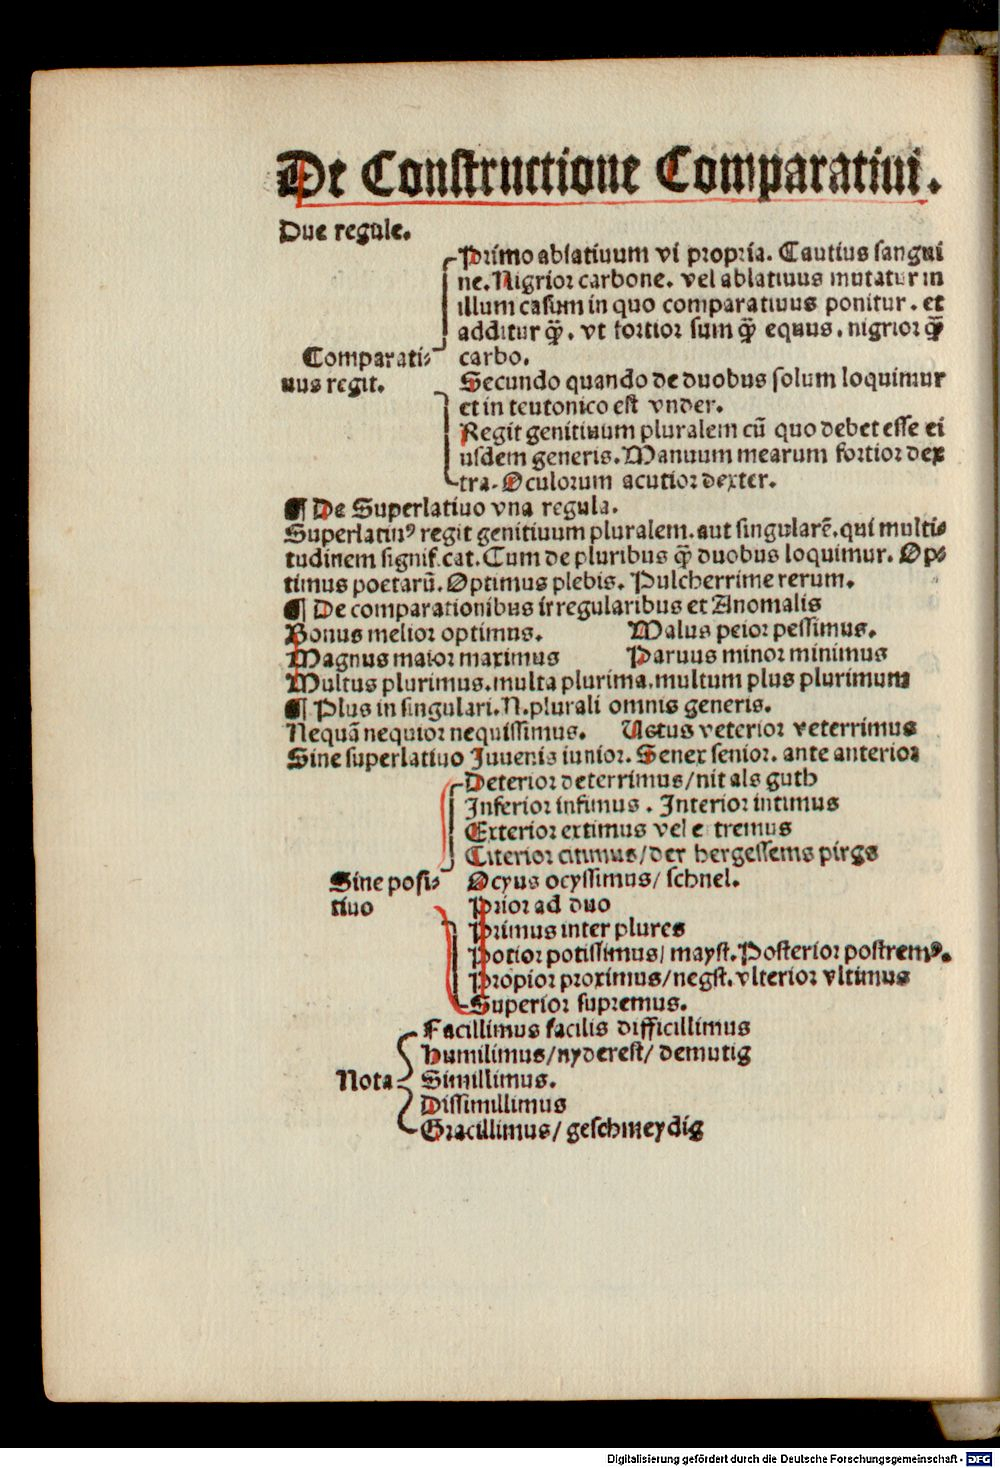 De Constructione Comparatiui.
Due regule.
Primo ablatiuum vi propria. Cautius sangui
ne. Nigrior carbone. vel ablatiuus mutatur in
illum casum in quo comparatiuus ponitur. et
additur q̄. vt fortior sum q̄ equus. nigrior q̄
carbo.
Comparati⸗
uus regit.
Secundo quando de duobus solum loquimur
et in teutonico est vnder.
Regit genitiuum pluralem cū quo debet esse ei
usdem generis. Manuum mearum fortior dex
tra. Oculorum acutior dexter.
¶ De Superlatiuo vna regula.
Superlatiuꝰ regit genitiuum pluralem. aut singularē. qui multi⸗
tudinem signif.cat. Cum de pluribus q̄ duobus loquimur. Op⸗
timus poetarū. Optimus plebis. Pulcherrime rerum.
¶ De comparationibus irregularibus et Anomalis
Bonus melior optimus. Malus peior pessimus.
Magnus maior maximus Paruus minor minimus
Multus plurimus. multa plurima. multum plus plurimum
¶ Plus in singulari. N. plurali omnis generis.
Nequā nequior nequissimus. Uetus veterior veterrimus
Sine superlatiuo Juuenis iunior. Senex senior. ante anterior
Deterior deterrimus/ nit als guth
Inferior infimus. Interior intimus
Exterior extimus vel e tremus
Citerior citimus/ der hergessems pirgs
Sine posi⸗
tiuo
Ocyus ocyssimus/ schnel.
Prior ad duo
Primus inter plures
Potior potissimus/ mayst. Posterior postremꝰ.
Propior proximus/ negst. vlterior vltimus
Superior supremus.
Facillimus facilis difficillimus
Humilimus/ nyderest/ demutig
Nota Simillimus.
Dissimillimus
Gracillimus/ geschmeydig
Digitalisierung gefördert durch die Deutsche Forschungsgemeinschaft - DFG